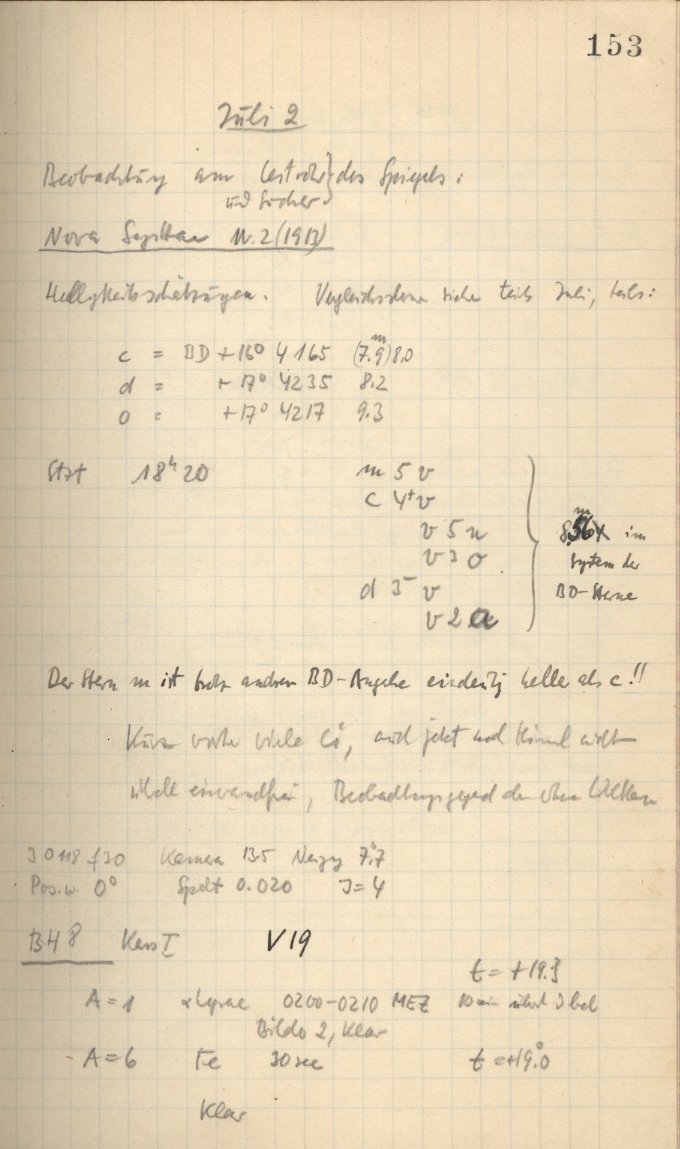 153
Juli 2
Beobachtung am Leitrohr } des Spiegels:
und Sucher
Nova Sagittae N. 2 (1913)
Helligkeitsschätzungen. Vergleichssterne siehe teils Juli, teils:
c = BD +16° 4165 (7.9)8.0
d = +17° 4235 8.2
o = +17° 4217 9.3
Stzt 18h 20 m 5 v
c 4+ v
v 5 n
v 3 o
d 3- v
v 2 a
8.56 im
System der
BD-Sterne
Der Stern m ist trotz andrer BD-Angabe eindeutig heller als c!!
Kurz vorher viele Ci, auch jetzt noch Himmel nicht
überall einwandfrei, Beobachtungsgegend aber ohne Wolken
30118 f30 Kamera B5 Neigg 7.°7
Pos.w. 0° Spalt 0.020 J=4
BH 8 Kass I V19
t = +19.3
A = 1 α Lyrae 0200-0210 MEZ 10 min
Bildg 2, klar
A = 6 Fe 30 sec t = +19.°0
Klar